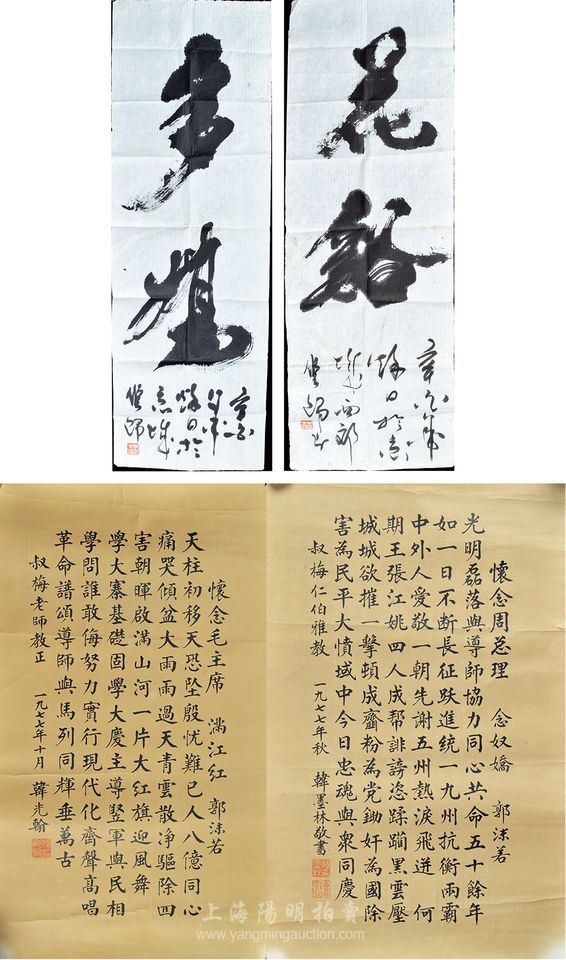 花谿
多禧
懷念周总理　念奴嬌　郭沫若
光明磊落與導師協力同心共命五十餘年
如一日不断長征跃進統一九州抗衡兩霸
中外人愛敬一朝先謝五州熱淚飛迸　何
期王張江姚四人成帮誹謗恣蹂躪黑雲壓
城城欲摧一擊頓成齏粉為党鋤奸為國除
害為民平大憤域中今日忠魂與衆同慶
叔梅仁伯雅教　一九七七年秋　韓墨林敬書
懷念毛主席　滿江紅　郭沫若
天柱初移天恐坠殷忧難已人八億同心
痛哭傾盆大雨雨過天青雲散净驅除四
害朝暉啟滿山河一片大红旗迎風舞
學大寨基礎固學大慶主導豎軍與民相
學問誰敢侮努力實行現代化齊聲高唱
革命譜頌導師與馬列同輝垂萬古
叔梅老師教正　一九七七年十月　韓光翰
上海陽明拍賣
www.yangmingauction.com